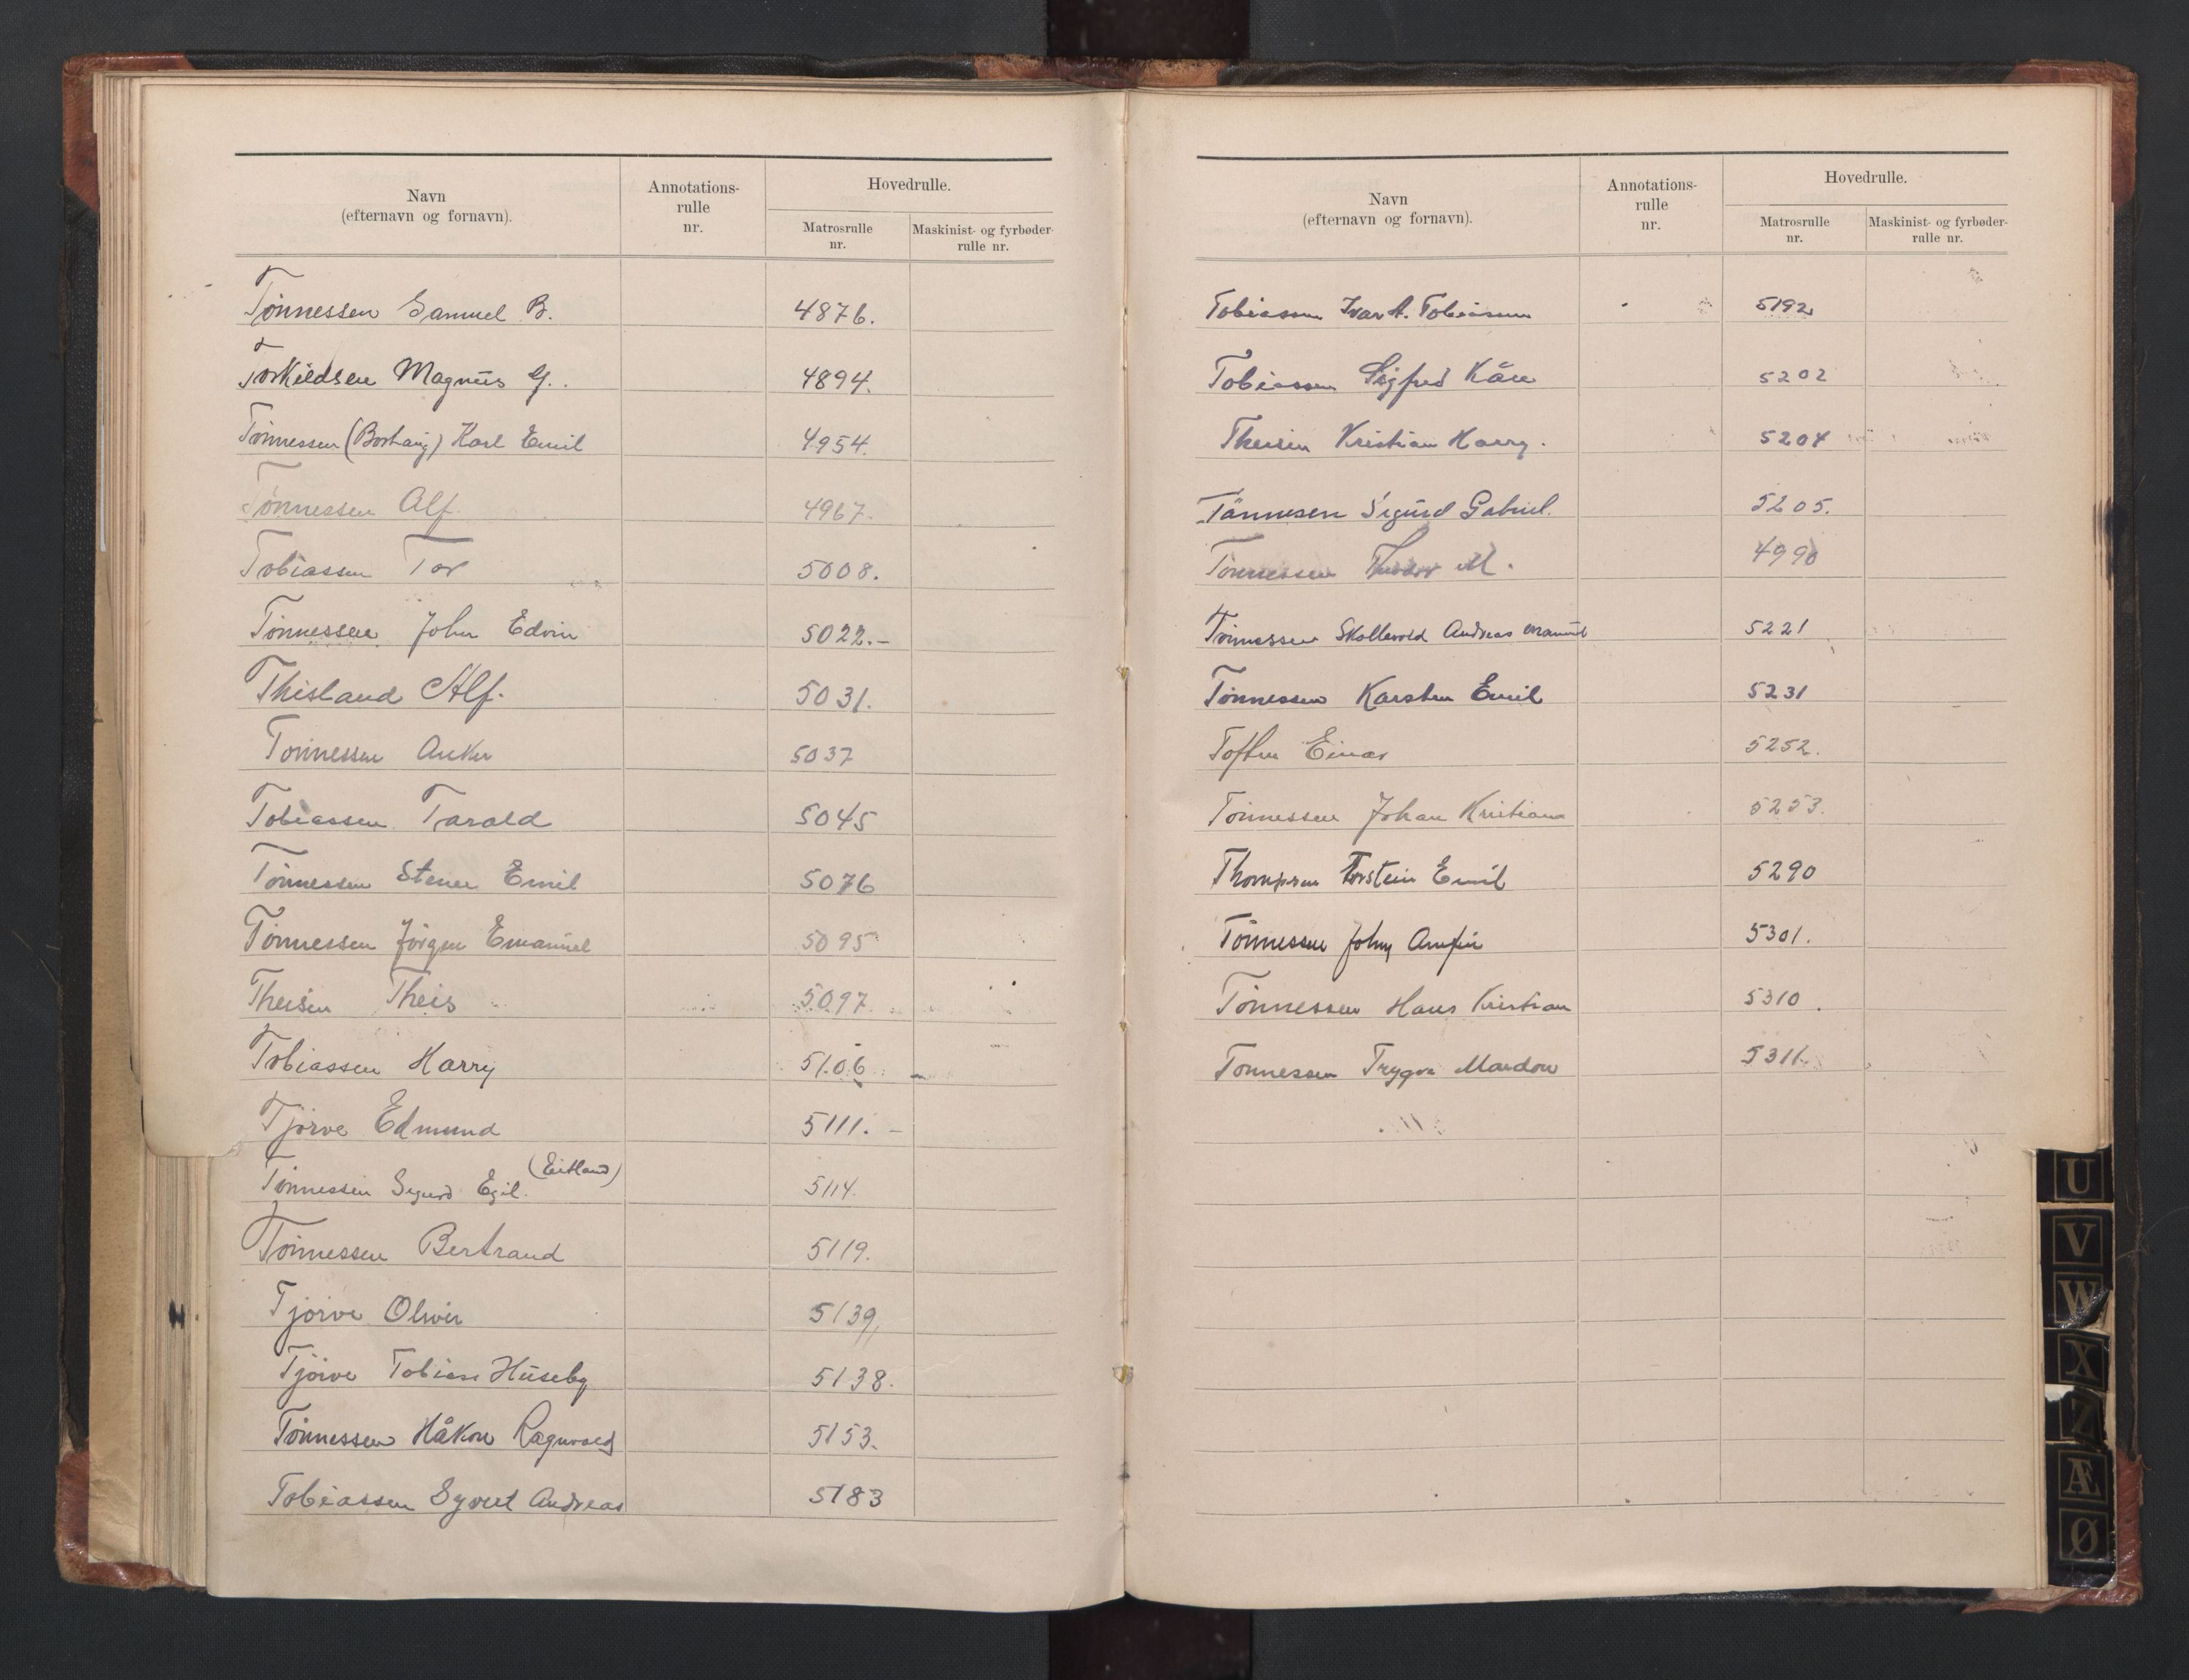 Navn
(efternavn og fornavn).
Annotations-
rulle
nr.
Hovedrulle.
Matrosrulle
nr.
Maskinist- og fyrbøder-
rulle nr.
Tönnessen Samuel B. 4876.
Torkildsen Magnus G. 4894.
Tönnessen (Borhaug) Karl Emil 4954.
Tönnessen Alf. 4967.
Tobiassen Tor 5008.
Tönnessen John Edvin 5022.-
Thisland Alf. 5031.
Tönnessen Anker 5037
Tobiassen Tarald 5045
Tönnessen Stener Emil 5076
Tönnessen Jörgen Emanuel 5095
Theisen Theis 5097
Tobiassen Harry 5106
Tjörve Edmund 5111. -
(Eitland)
Tönnessen Sigurd Egil. 5114.
Tönnessen Bertrand 5119.
Tjörve Oliver 5139,
Tjörve Tobias Huseby 5138.
Tönnessen Håkon Ragnvald 5153.
Tobiassen Syvert Andreas 5183
Navn
(efternavn og fornavn).
Annotations-
rulle
nr.
Hovedrulle.
Matrosrulle
nr.
Maskinist- og fyrbøder-
rulle nr.
Tobiassen Ivar A. Tobiassen 5192
Tobiassen Sigfred Kåre 5202
Theisen Kristian Harry. 5204
Tönnesen Sigurd Gabriel. 5205.
Tönnessen M. 4990
Tönnessen Skollevold Andreas Emanuel 5221
Tönnessen Karsten Emil 5231
Toften Einar 5252.
Tönnessen Johan Kristian 5253.
Thompson Torstein Emil 5290
Tönnessen John Arnfin 5301.
Tönnessen Hans Kristian 5310.
Tönnessen Trygve Mardon 5311.
U
V
W
X
Z
Æ
Ø